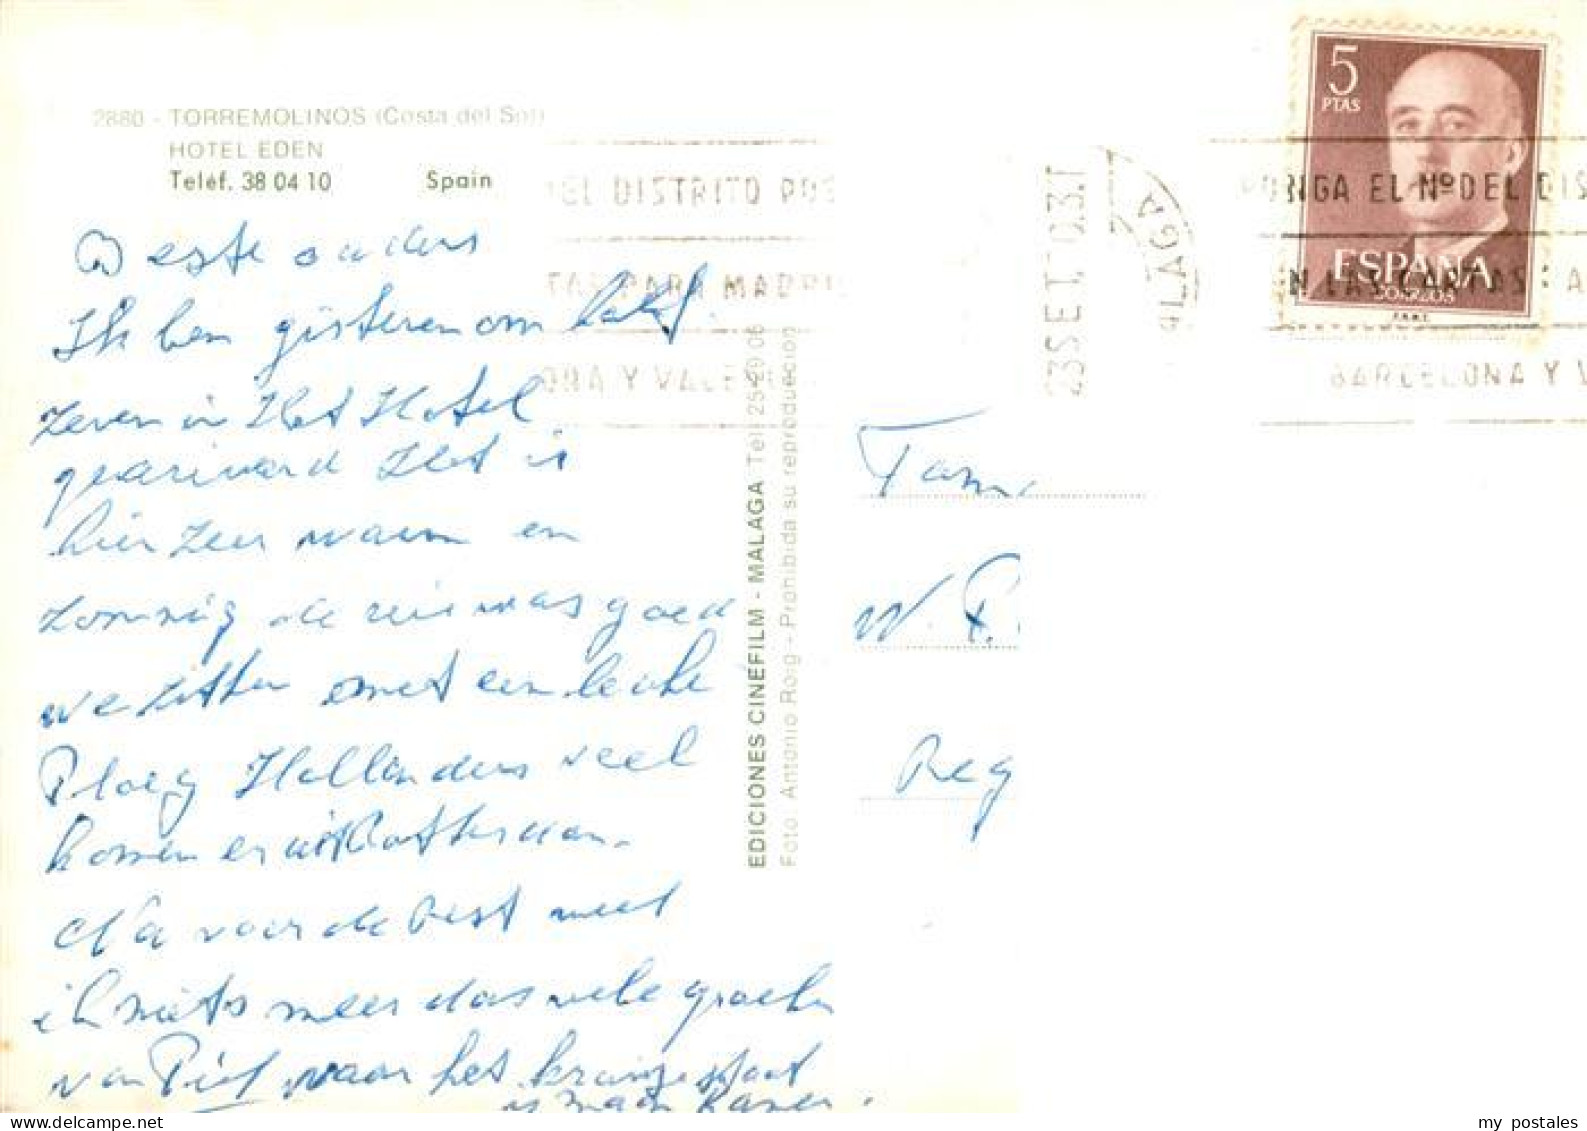 2880 - TORREMOLINOS (Costa del Sol)
HOTEL EDEN
Teléf. 38 04 10 Spain
Beste ouders
Ik ben gisteren om half
zeven in Het Hotel
gearriverd Het is
hier zeer warm en
zonnig de reis was goed
we zitten met een leuke
Ploeg Hollanders veel
komen er uit Rotterdam.
Na voor de rest weet
ik niets meer das vele groeten
van Piet, waar het kruisje staat
is mijn Kamer.
EDICIONES CINEFILM - MALAGA Tel. 25 29 06
Foto. Antonio Roig - Prohibida su reproduccion
EL DISTRITO POS
TAL PARA MADRI
ONA Y VALEN
23 SET. 03.T
MALAGA
PONGA EL Nº DEL DIS
EN LAS CARTAS: A
BARCELONA Y V
5
PTAS
ESPAÑA
CORREOS
Fam.
W. P.
Reg
my postales